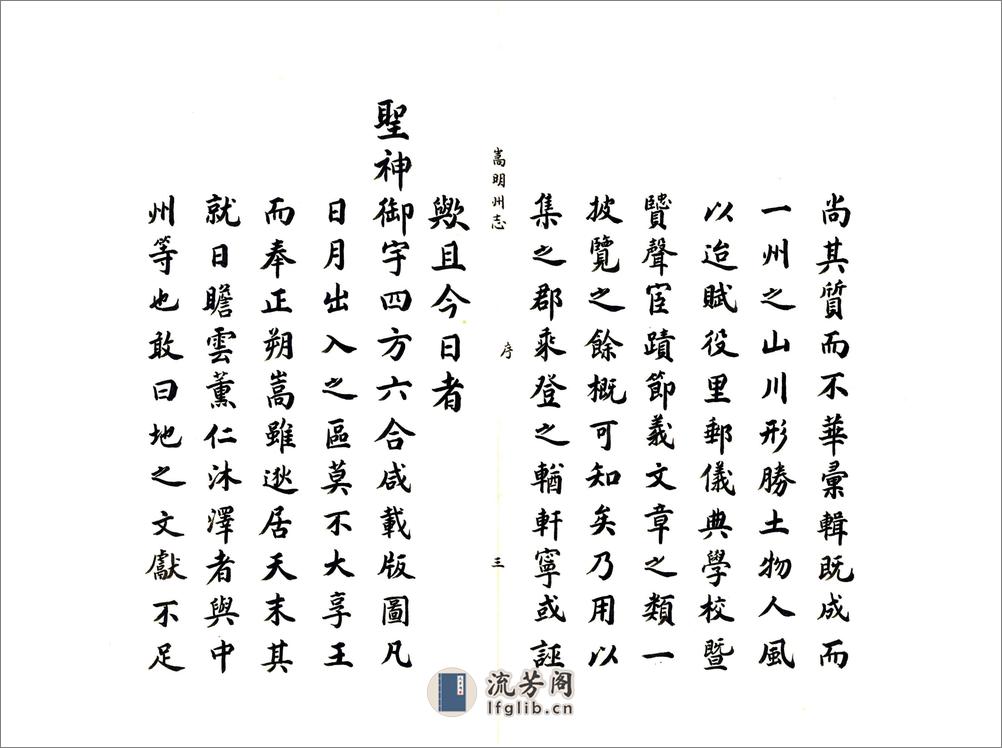 尚其質而不華彚輯既成而
一州之山川形勝土物人風
以迨賦役里郵儀典學校暨
贒聲宦蹟節義文章之類一
披覽之餘概可知矣乃用以
集之郡乘登之輶軒寧或誣
嵩明州志
序
三
歟且今日者
聖神御宇四方六合咸載版圖凡
日月出入之區莫不大享王
而奉正朔嵩雖逖居天末其
就日瞻雲薰仁沐澤者與中
州等也敢曰地之文獻不足
流芳阁
lfglib.cn